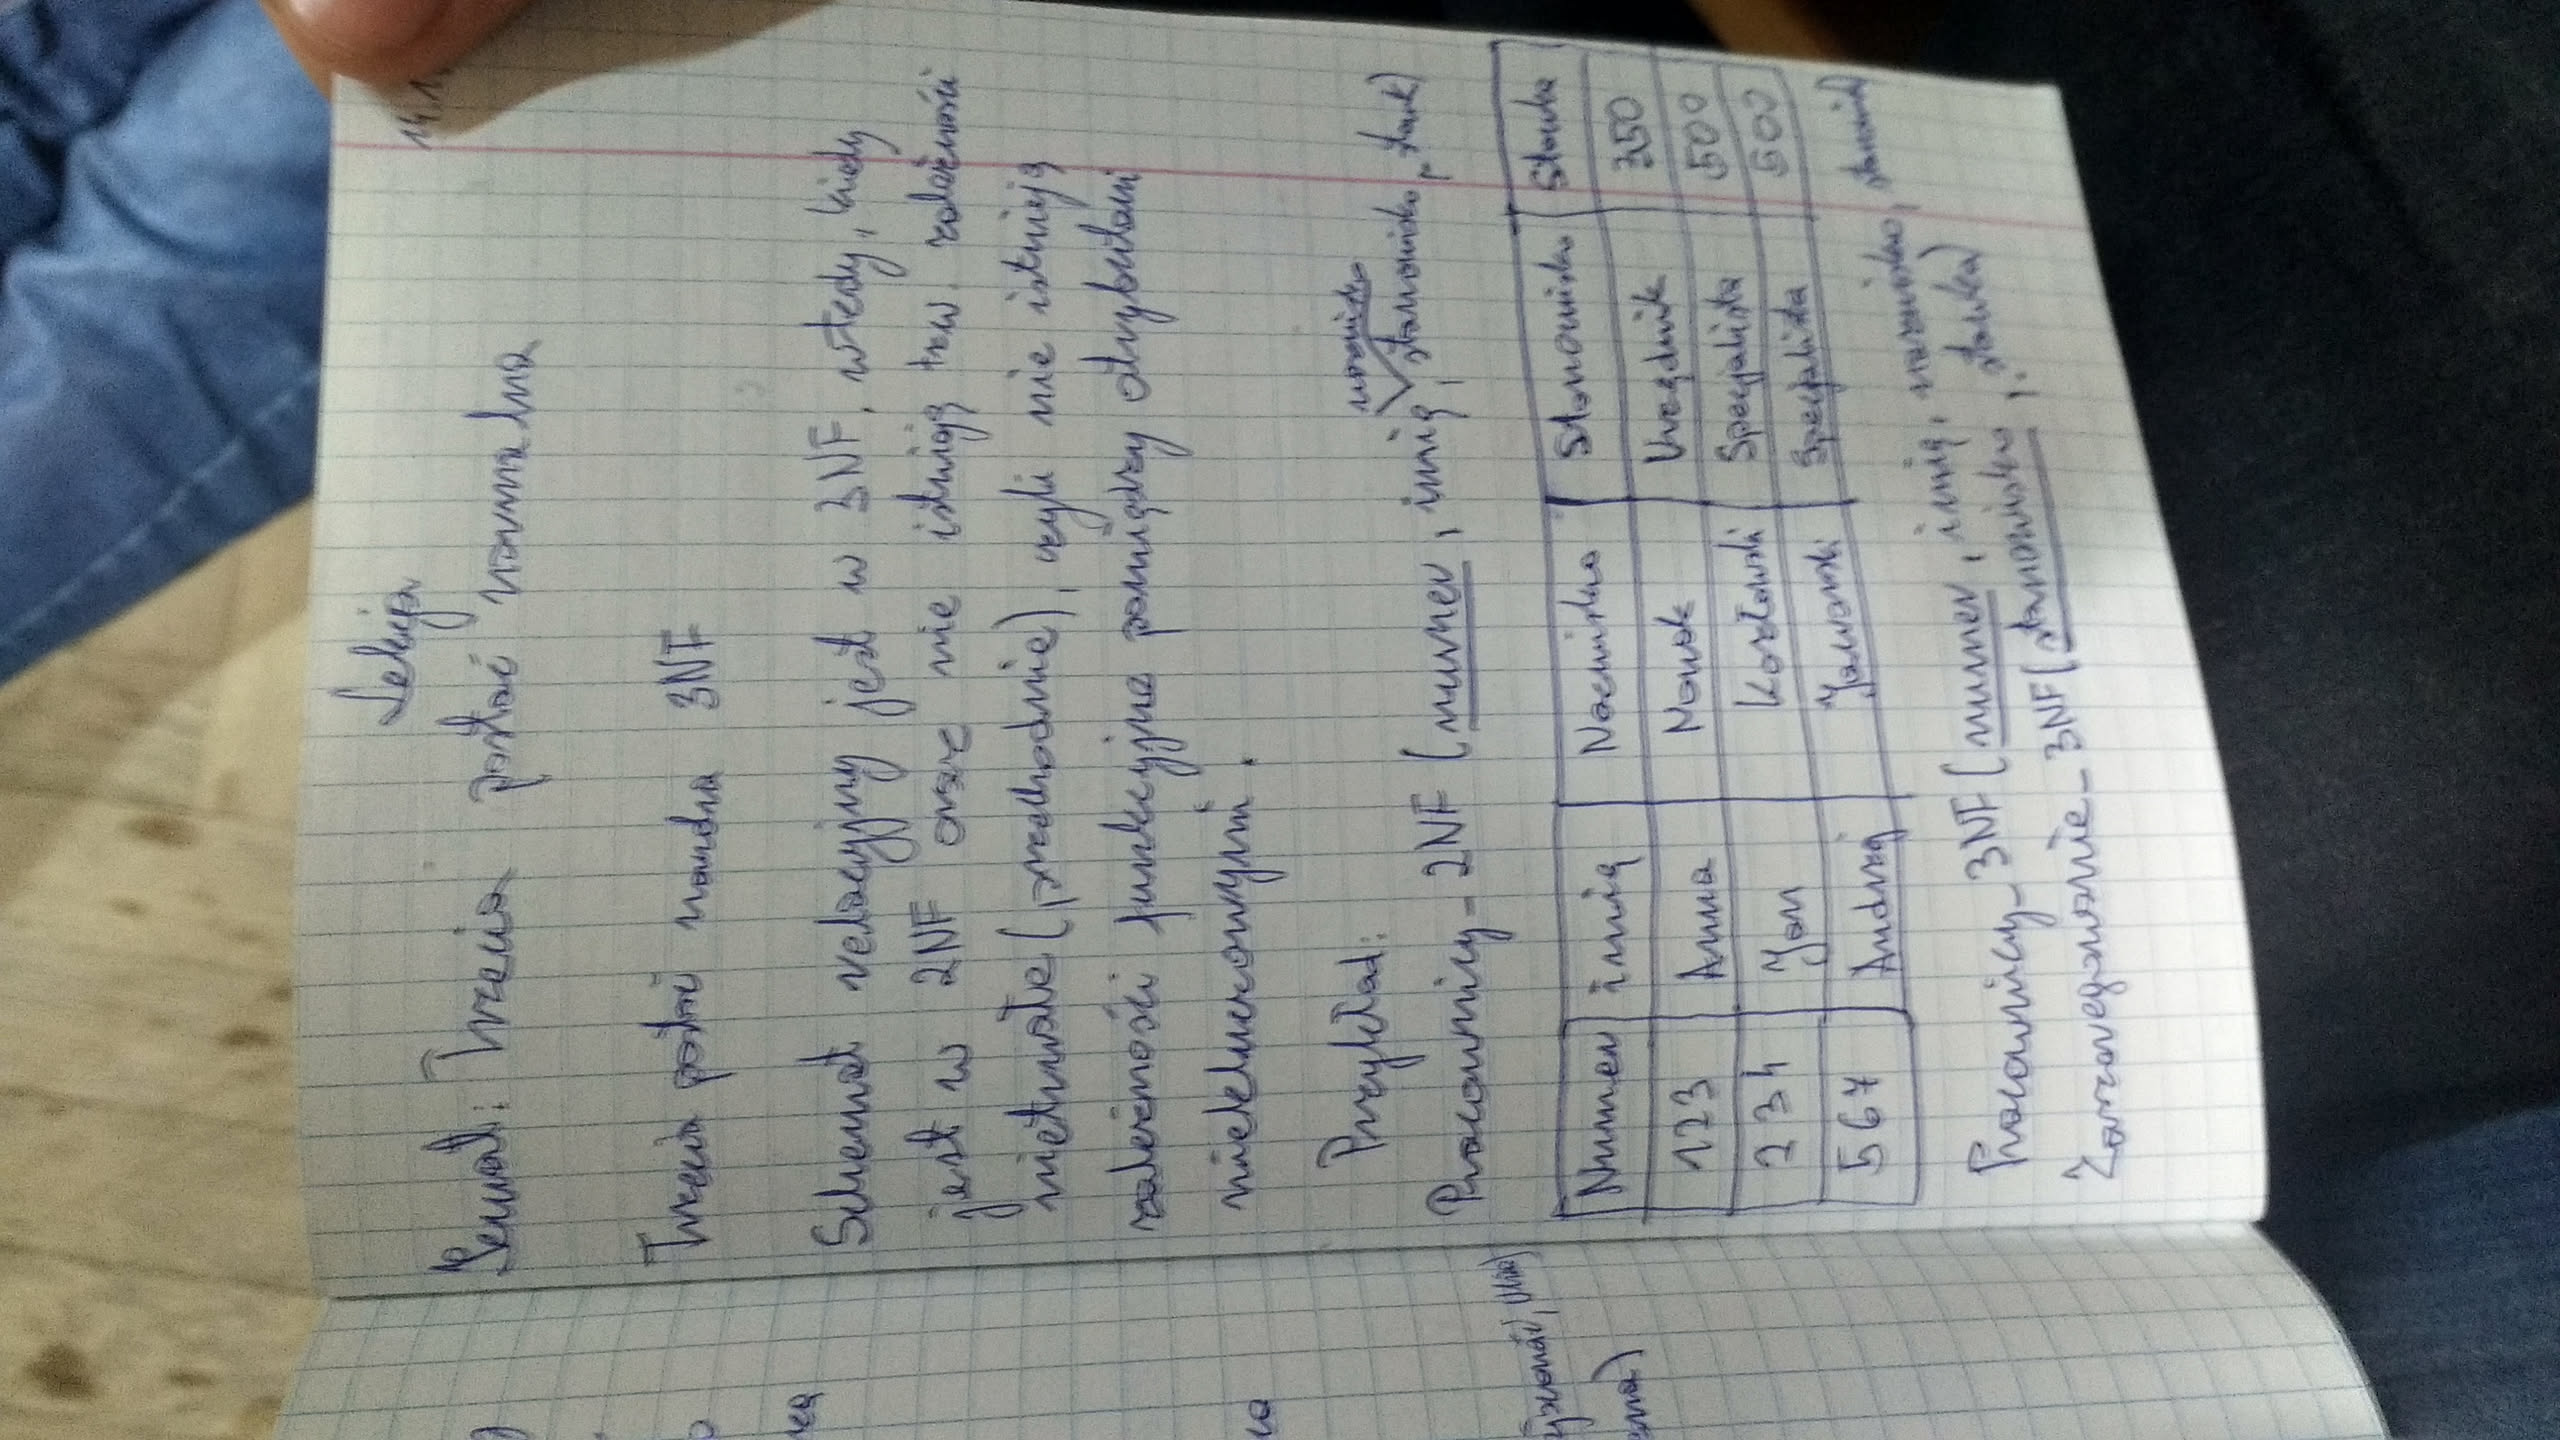 Lekcja
14.1
Temat: Trzecia postać normalna
Trzecia postać normalna 3NF
Schemat relacyjny jest w 3NF, wtedy, kiedy
jest w 2NF oraz nie istnieją tzw. zależności
nietrwałe (przechodnie), czyli nie istnieją
zależności funkcyjne pomiędzy atrybutami
niekluczowymi.
Przykład:
nazwisko
Pracownicy-2NF (numer, imię, stanowisko, stawk)
Numer imię Nazwisko Stanowisko Stawka
123 Anna Nowak Urzędnik 350
234 Jan Kozłowski Specjalista 500
567 Andrzej Jaworski Specjalista 500
Pracownicy_3NF (numer, imię, nazwisko, stanowisk)
Zaszeregowanie_3NF (stanowisko, stawka)